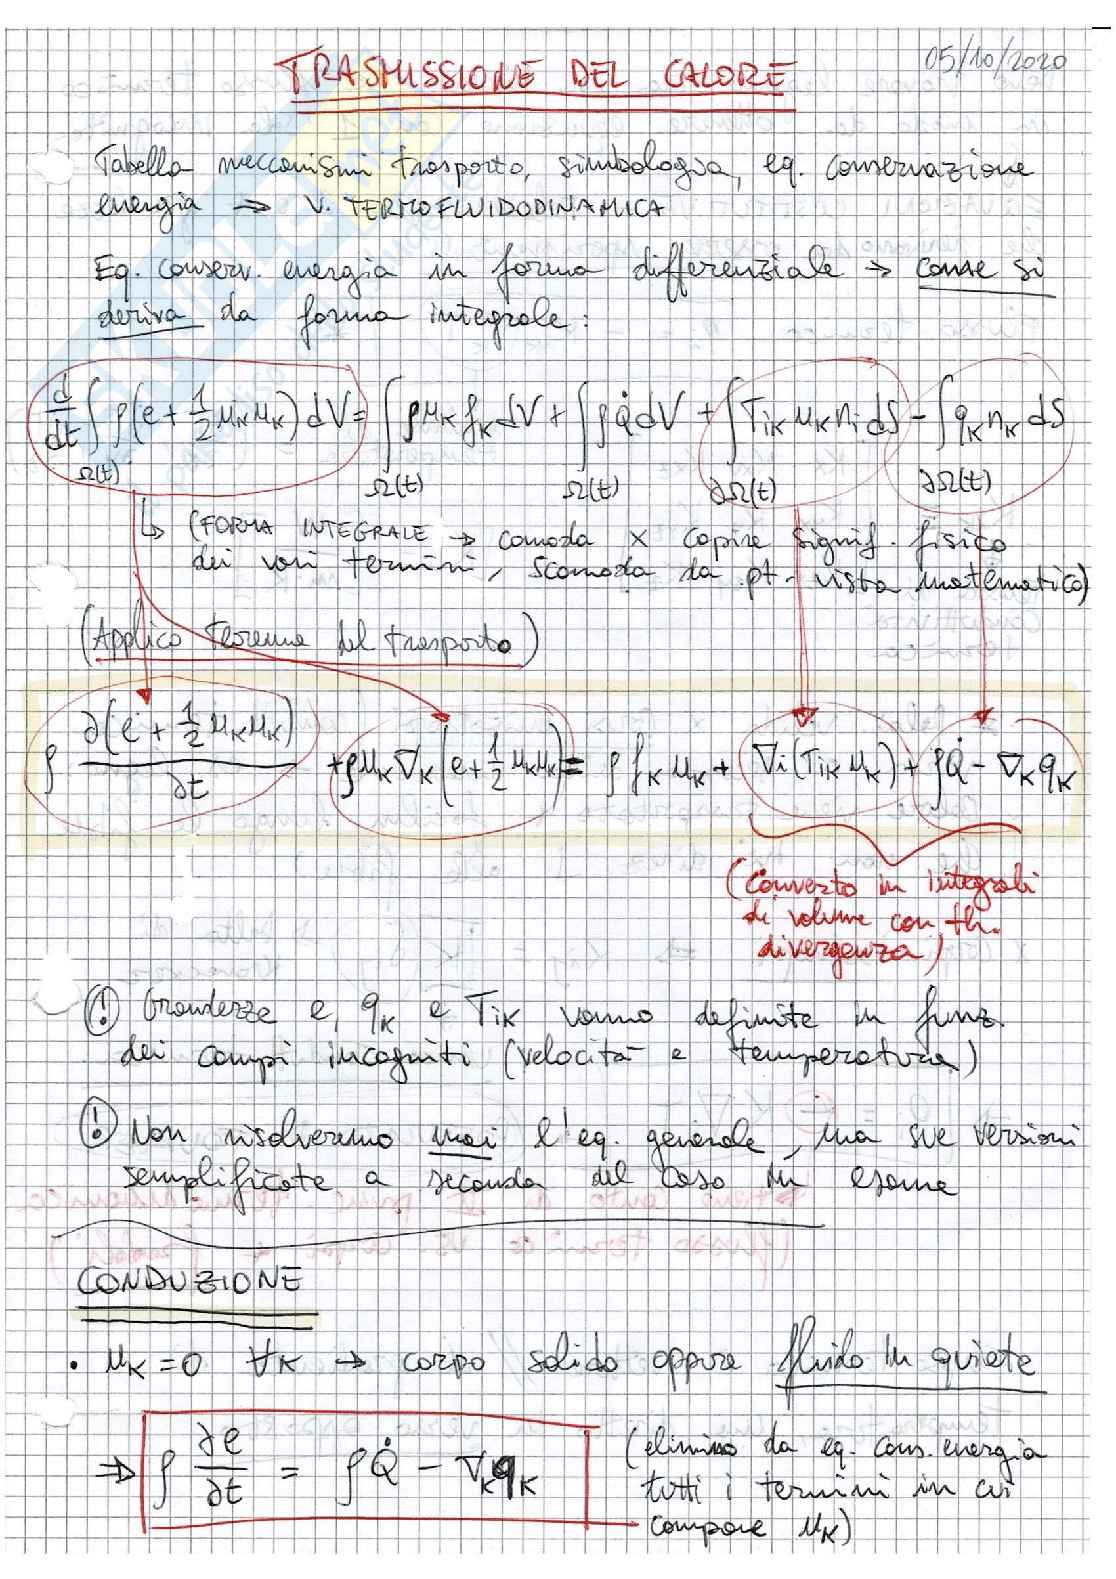 05/10/2020
TRASMISSIONE DEL CALORE
Tabella meccanismi trasporto, simbologia, eq. conservazione
energia → V. TERMOFLUIDODINAMICA
Eq. conserv. energia in forma differenziale → come si
deriva da forma integrale:
d/dt ∫_Ω(t) ρ(e + 1/2 u_K u_K) dV = ∫_Ω(t) ρ u_K f_K dV + ∫_Ω(t) ρ Q̇ dV + ∫_∂Ω(t) T_iK u_K n_i dS - ∫_∂Ω(t) q_K n_K dS
↳ (FORMA INTEGRALE → comoda x capire signif. fisico
dei vari termini, scomoda da pt. vista matematico)
(Applico teorema del trasporto)
ρ ∂(e + 1/2 u_K u_K)/∂t + ρ u_K ∇_K (e + 1/2 u_K u_K) = ρ f_K u_K + ∇_i (T_iK u_K) + ρ Q̇ - ∇_K q_K
(converto in integrali
di volume con th.
divergenza)
(!) Grandezze e, q_K e T_iK vanno definite in funz.
dei campi incogniti (velocità e temperatura)
(!) Non risolveremo mai l'eq. generale, ma sue versioni
semplificate a seconda del caso in esame
CONDUZIONE
• u_K = 0 ∀K → corpo solido oppure fluido in quiete
⇒ ρ ∂e/∂t = ρ Q̇ - ∇_K q_K
(elimino da eq. cons. energia
tutti i termini in cui
compare u_K)